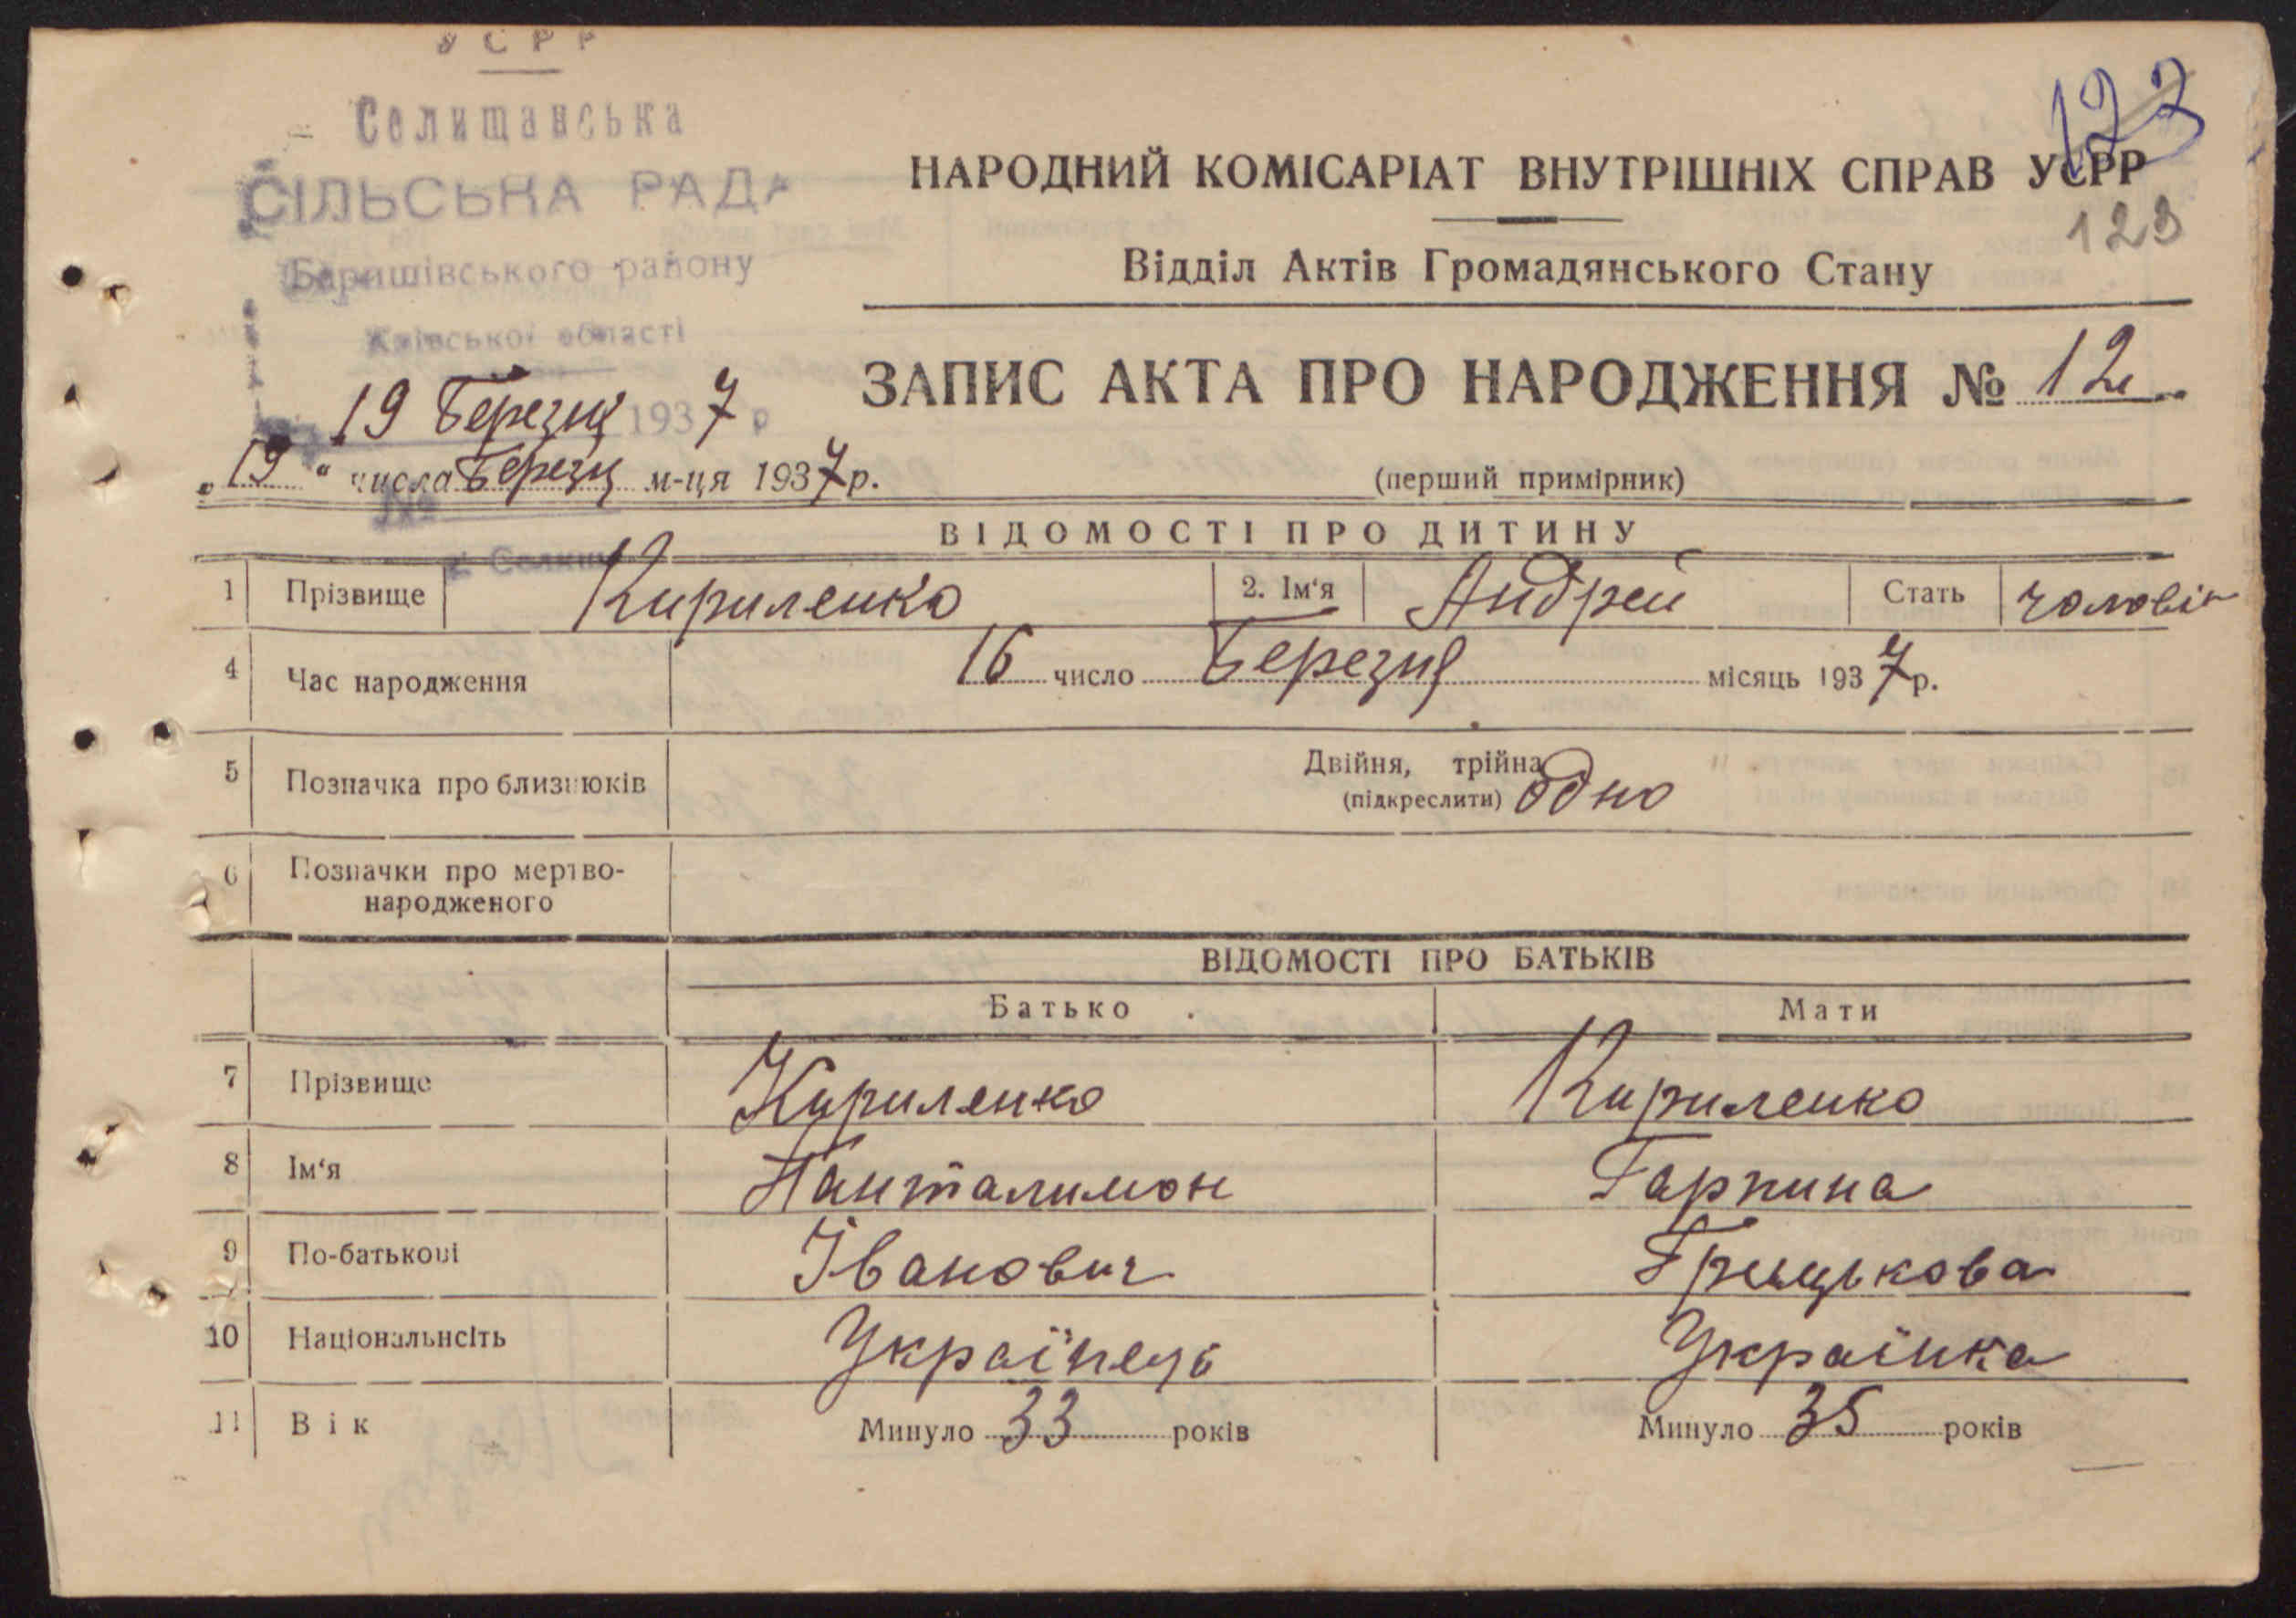 УСРР
Селищанська
СІЛЬСЬКА РАДА
Баришівського району
Київської області
19 Березня 1937 р
№
с. Селище
123
НАРОДНИЙ КОМІСАРІАТ ВНУТРІШНІХ СПРАВ УСРР
123
Відділ Актів Громадянського Стану
ЗАПИС АКТА ПРО НАРОДЖЕННЯ № 12
„19“ числа Березня м-ця 1937 р.
(перший примірник)
ВІДОМОСТІ ПРО ДИТИНУ
1 Прізвище Кириленко 2. Ім‘я Андрей Стать чоловік
4 Час народження 16 число Березня місяць 1937 р.
5 Позначка про близнюків Двійня, трійня одно
(підкреслити)
6 Позначки про мертво-
народженого
ВІДОМОСТІ ПРО БАТЬКІВ
Батько Мати
7 Прізвище Кириленко Кириленко
8 Ім‘я Панталимон Гарпина
9 По-батькові Іванович Грицькова
10 Національнсіть Українець Українка
11 Вік Минуло 33 років Минуло 35 років